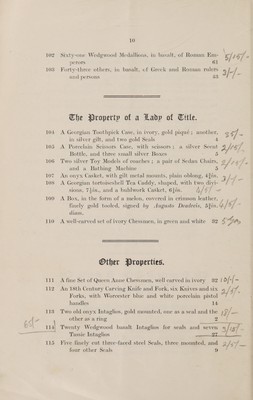 10
102 Sixty-one Wedgwood Medallions, in basalt, of Roman Em-
perors 61
103 Forty-three others, in basalt, of Greek and Roman rulers
and persons 43
The Property of a Lady of Title.
104 A Georgian Toothpick Case, in ivory, gold piqué; another,
in silver gilt, and two gold Seals 4
105 A Porcelain Scissors Case, with scissors; a silver Scent
Bottle, and three small silver Boxes 5
106 Two silver Toy Models of coaches; a pair of Sedan Chairs,
and a Bathing Machine 5
107 An onyx Casket, with gilt metal mounts, plain oblong, 4½in.
108 A Georgian tortoiseshell Tea Caddy, shaped, with two divi-
sions, 7½in., and a buhlwork Casket, 6½in.
109 A Box, in the form of a melon, covered in crimson leather,
finely gold tooled, signed by
diam.
110 A well-carved set of ivory Chessmen, in green and white 32
Other Properties.
111 A fine Set of Queen Anne Chessmen, well carved in ivory 32
112 An 18th Century Carving Knife and Fork, six Knives and six
Forks, with Worcester blue and white porcelain pistol
handles 14
113 Two old onyx Intaglios, gold mounted, one as a seal and the
other as a ring 2
114 Twenty Wedgwood basalt Intaglios for seals and seven
Tassie Intaglios 27
115 Five finely cut three-faced steel Seals, three mounted, and
four other Seals 9